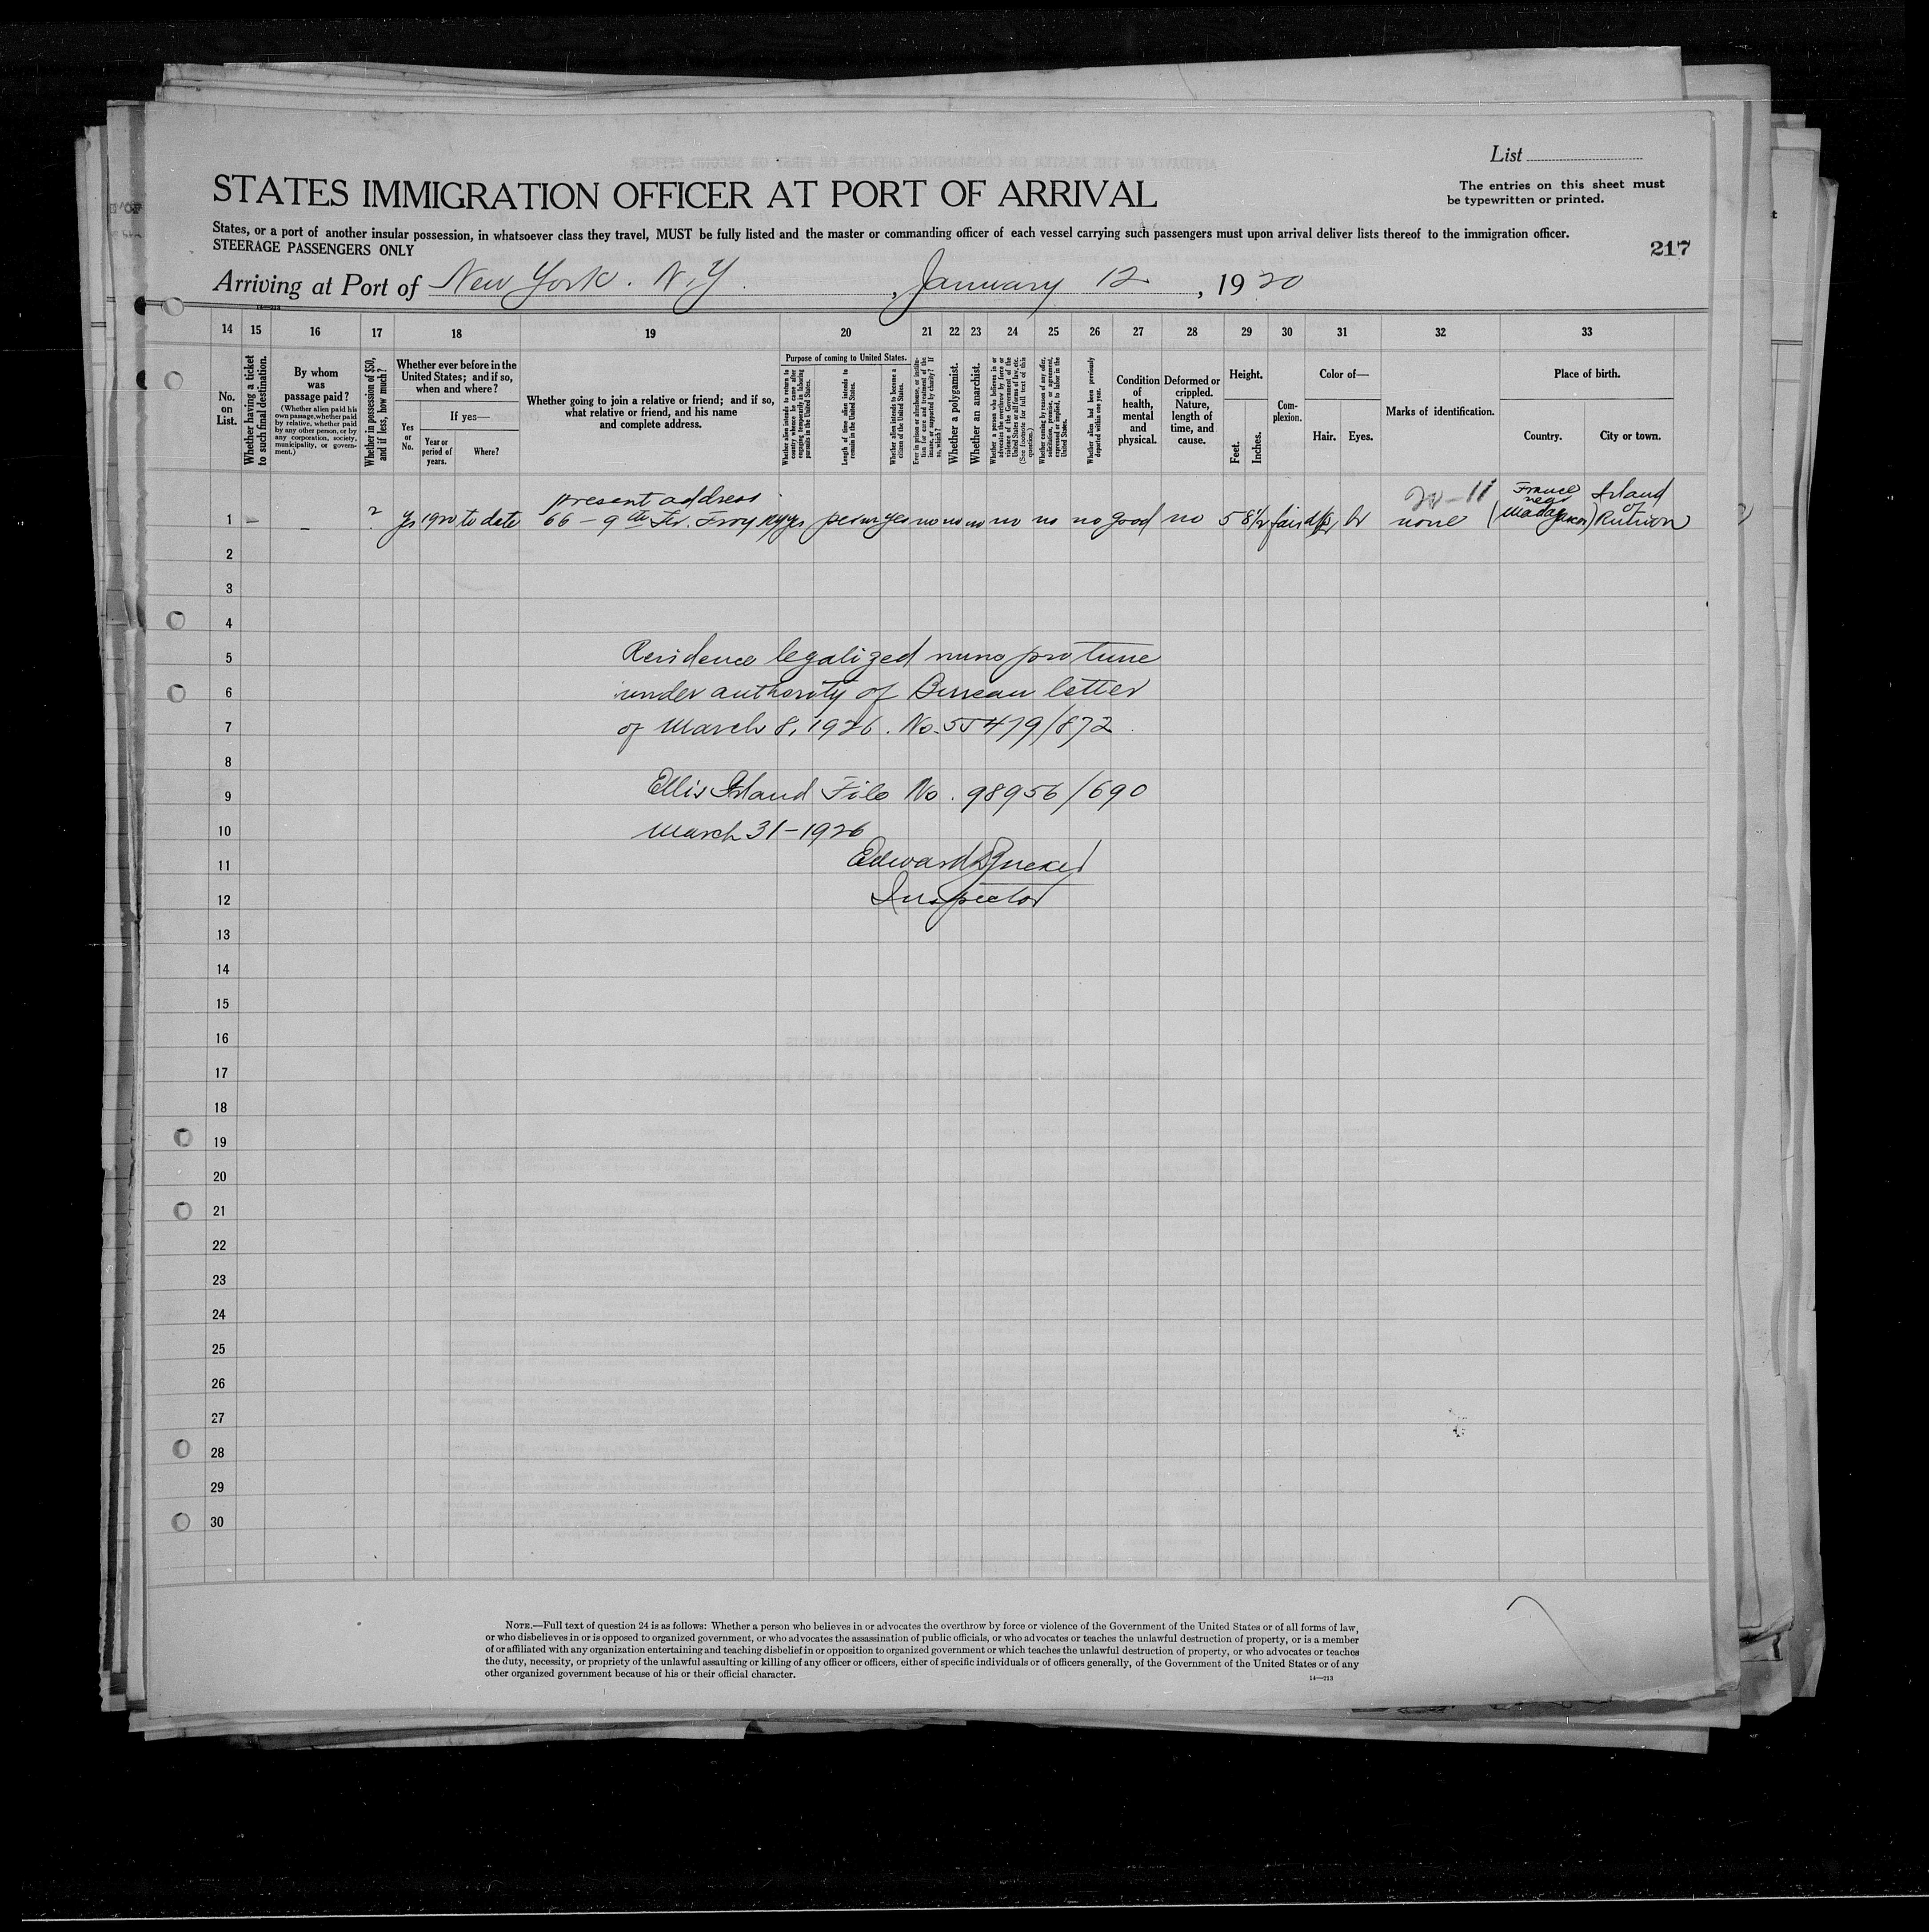 List
STATES IMMIGRATION OFFICER AT PORT OF ARRIVAL
The entries on this sheet must
be typewritten or printed.
States, or a port of another insular possession, in whatsoever class they travel, MUST be fully listed and the master or commanding officer of each vessel carrying such passengers must upon arrival deliver lists thereof to the immigration officer.
STEERAGE PASSENGERS ONLY
217
Arriving at Port of New York. N.Y. , January 12 , 1920
14—213
14 15 16 17 18 19 20 21 22 23 24 25 26 27 28 29 30 31 32 33
No. on List.
Whether having a ticket to such final destination.
By whom was passage paid?
(Whether alien paid his own passage, whether paid by relative, whether paid by any other person, or by any corporation, society, municipality, or government.)
Whether in possession of $50, and if less, how much?
Whether ever before in the United States; and if so, when and where?
Yes or No.
If yes—
Year or period of years.
Where?
Whether going to join a relative or friend; and if so, what relative or friend, and his name and complete address.
Purpose of coming to United States.
Whether alien intends to return to country whence he came after engaging temporarily in laboring pursuits in the United States.
Length of time alien intends to remain in the United States.
Whether alien intends to become a citizen of the United States.
Ever in prison or almshouse, or institution for care and treatment of the insane, or supported by charity? If so, which?
Whether a polygamist.
Whether an anarchist.
Whether a person who believes in or advocates the overthrow by force or violence of the Government of the United States or all forms of law, etc. (See footnote for full text of this question.)
Whether coming by reason of any offer, solicitation, promise, or agreement, expressed or implied, to labor in the United States.
Whether alien had been previously deported within one year.
Condition of health, mental and physical.
Deformed or crippled. Nature, length of time, and cause.
Height.
Feet. Inches.
Complexion.
Color of—
Hair. Eyes.
Marks of identification.
Place of birth.
Country. City or town.
present address
20-11
France
near
Island
of
1 — — ? yes 1920 to date 66 – 9th St. Troy NY yes perm yes no no no no no no good no 5 8½ fair br none (Madagascar) Reunion
2
3
4
5 Residence legalized nunc pro tunc
6 under authority of Bureau letter
7 of March 8, 1926. No. 55479/872
8
9 Ellis Island File No. 98956/690
10 March 31-1926
11 Edward
12 Inspector
13
14
15
16
17
18
19
20
21
22
23
24
25
26
27
28
29
30
NOTE.—Full text of question 24 is as follows: Whether a person who believes in or advocates the overthrow by force or violence of the Government of the United States or of all forms of law,
or who disbelieves in or is opposed to organized government, or who advocates the assassination of public officials, or who advocates or teaches the unlawful destruction of property, or is a member
of or affiliated with any organization entertaining and teaching disbelief in or opposition to organized government or which teaches the unlawful destruction of property, or who advocates or teaches
the duty, necessity, or propriety of the unlawful assaulting or killing of any officer or officers, either of specific individuals or of officers generally, of the Government of the United States or of any
other organized government because of his or their official character.
14—213